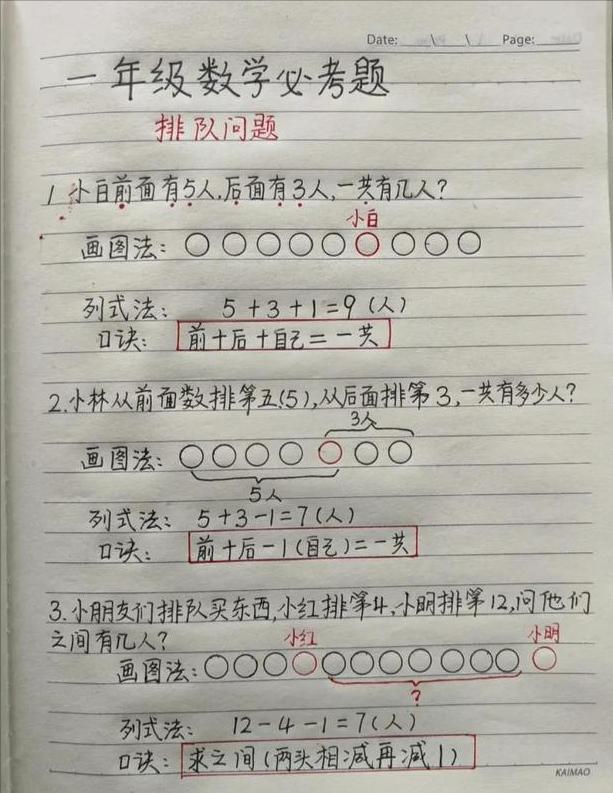 Date: \ \ Page:
一年级数学必考题
排队问题
1 小白前面有5人,后面有3人,一共有几人?
小白
画图法:
列式法: 5+3+1=9(人)
口诀: 前十后十自己=一共
2.小林从前面数排第五(5),从后面排第3,一共有多少人?
3人
画图法:
5人
列式法: 5+3-1=7(人)
口诀: 前十后-1(自己)=一共
3.小朋友们排队买东西,小红排第4,小明排第12,问他们
之间有几人?
小红 小明
画图法:
?
列式法: 12-4-1=7(人)
口诀: 求之间(两头相减再减1)
KAIMAO